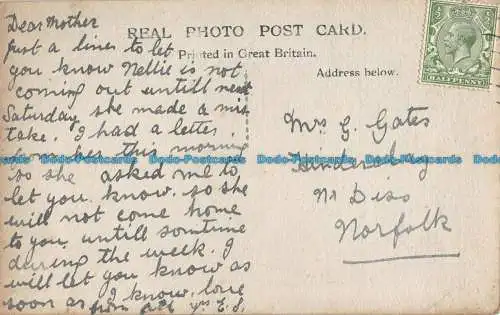 Dear Mother
Just a line to let
you know Nellie is not
coming out untill next
Saturday she made a mis
take. I had a letter
from her this morning
so she asked me to
let you know. so she
will not come home
to you untill somtime
during the week. I
will let you know as
soon as I know. love
from all yrs E.S.
REAL PHOTO POST CARD.
Printed in Great Britain.
Address below.
HALFPENNY
Mrs G. Gates
Nr Diss
Norfolk
Dodo-Postcards Dodo-Postcards Dodo-Postcards Dodo-Postcards Dodo-Postcards